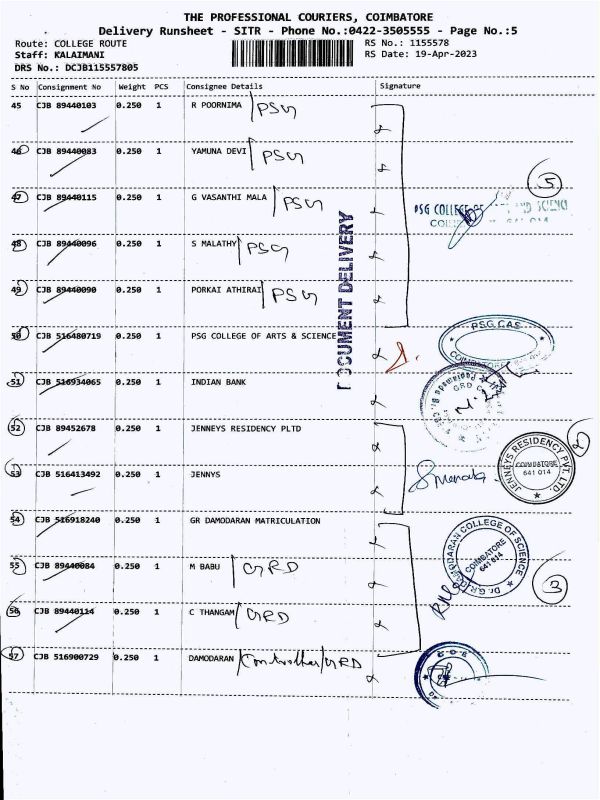 THE PROFESSIONAL COURIERS, COIMBATORE
Delivery Runsheet - SITR - Phone No.:0422-3505555 - Page No.:5
Route: COLLEGE ROUTE RS No.: 1155578
Staff: KALAIMANI RS Date: 19-Apr-2023
DRS No.: DCJB115557805
S No Consignment No Weight PCS Consignee Details Signature
45 CJB 89440103 0.250 1 R POORNIMA PSG
46 CJB 89440083 0.250 1 YAMUNA DEVI PSG
5
47 CJB 89440115 0.250 1 G VASANTHI MALA PSG
PSG COLLEGE OF AND SCIENCE
641 014
48 CJB 89440096 0.250 1 S MALATHY PSG
49 CJB 89440090 0.250 1 PORKAI ATHIRAI PSG
DOCUMENT DELIVERY
50 CJB 516480719 0.250 1 PSG COLLEGE OF ARTS & SCIENCE
PSG CAS
COIMBATORE
51 CJB 516934065 0.250 1 INDIAN BANK
GRD
52 CJB 89452678 0.250 1 JENNEYS RESIDENCY PLTD
2
53 CJB 516413492 0.250 1 JENNYS
JENNEYS RESIDENCY PVT. LTD.
COIMBATORE
641 014
54 CJB 516918240 0.250 1 GR DAMODARAN MATRICULATION
Dr. G.R. DAMODARAN COLLEGE OF SCIENCE
COIMBATORE
641 014
55 CJB 89440084 0.250 1 M BABU GRD
3
56 CJB 89440114 0.250 1 C THANGAM GRD
57 CJB 516900729 0.250 1 DAMODARAN Controller GRD